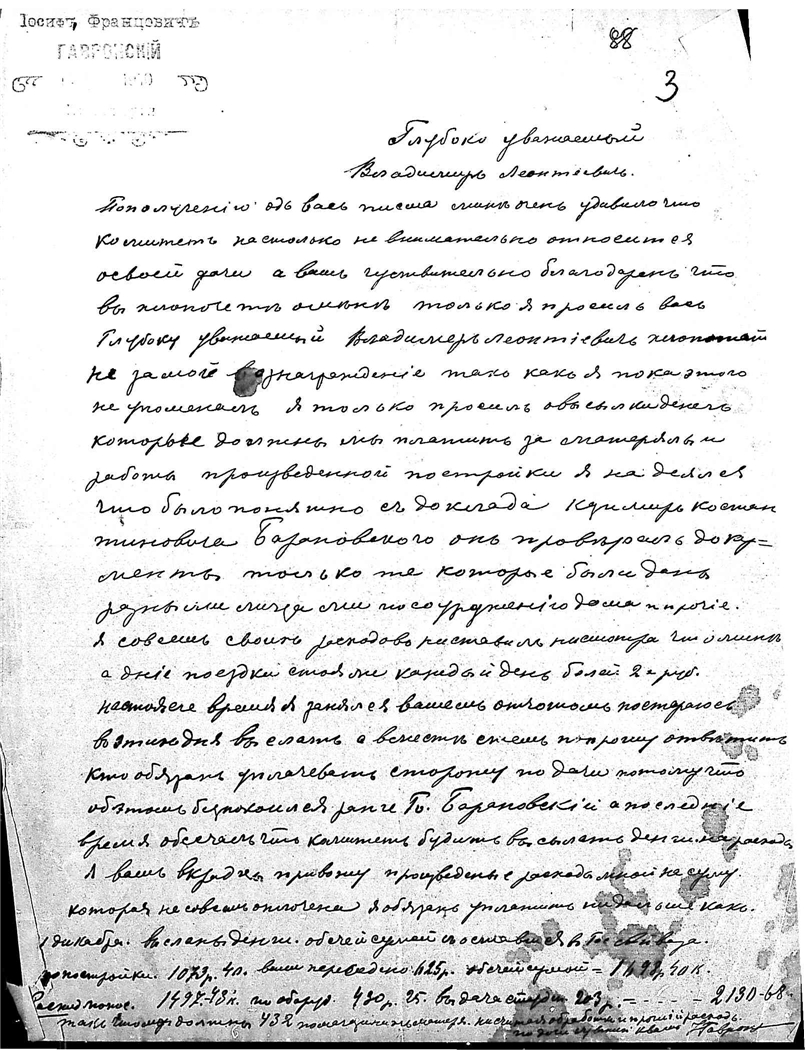 Іосифъ Францовичъ
ГАВРОНСКІЙ
88
3
Глубоко уважаемый
Владимиръ Леонтіевичъ.
Пополученію одъ васъ писма очень удивило что
комитетъ настолько не внимательно относится
освоей дачи а вамъ чуствительно благодаренъ что
вы только я просилъ васъ
Глубоку уважаемый Владимеръ Леонтіевичъ
не замоё вознагражденіе тако какъ я пока этого
не упоменаль я только просилъ овысылки денегъ
которые должны мы платить за матеряль и
работы произведенной постройки я надеялся
что было понятно съ доклада Костан
тиновича Барановского онъ провѣралъ доку=
менты только те которые были даны
разными лицами по соуруженію дома и прочіе.
я совсемъ своихъ расходовъ
а дніе поездки стояли каждый день болей 2х руб.
настоясе время я занялся вашемъ отчотомъ постараюсь
вэтихъ дня выслать а вместѣ смемъ попрошу отвѣтить
кто обязанъ уплачевать сторожу по дачи потому что
объ этомъ безпокоился ранге Гн. Барановскій а последніе
время обесчаль что комитетъ будить высылать денги на расходъ
я вамъ привожу произведеные расходы мной на суму
которая не совсемъ оплочена я обязанъ уплатить нидальше какъ
1 декабра. высланы денги. обсчей сумай
по постройки. 1073р. 40. вами переведено 425р. обсчей сумой = 1498р. 40к.
1497-43к. по оборуд. 430р. 25. выдача 203р. = - - - - - 2130-68
такъ что мне должны 432